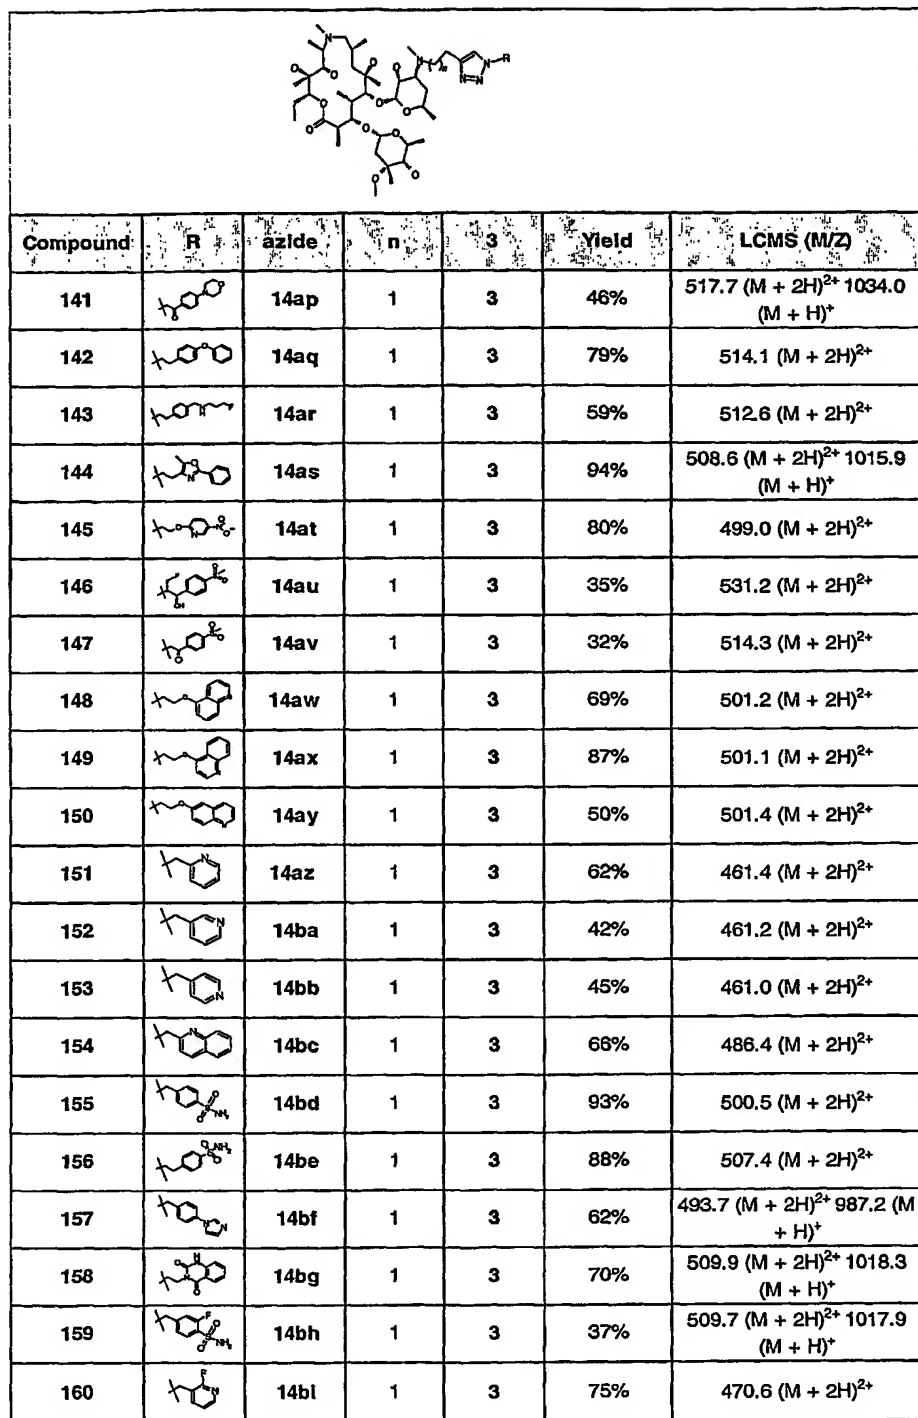 Compound R azide n 3 Yield LCMS (M/Z)
141 14ap 1 3 46% 517.7 (M + 2H)2+ 1034.0
(M + H)+
142 14aq 1 3 79% 514.1 (M + 2H)2+
143 14ar 1 3 59% 512.6 (M + 2H)2+
144 14as 1 3 94% 508.6 (M + 2H)2+ 1015.9
(M + H)+
145 14at 1 3 80% 499.0 (M + 2H)2+
146 14au 1 3 35% 531.2 (M + 2H)2+
147 14av 1 3 32% 514.3 (M + 2H)2+
148 14aw 1 3 69% 501.2 (M + 2H)2+
149 14ax 1 3 87% 501.1 (M + 2H)2+
150 14ay 1 3 50% 501.4 (M + 2H)2+
151 14az 1 3 62% 461.4 (M + 2H)2+
152 14ba 1 3 42% 461.2 (M + 2H)2+
153 14bb 1 3 45% 461.0 (M + 2H)2+
154 14bc 1 3 66% 486.4 (M + 2H)2+
155 14bd 1 3 93% 500.5 (M + 2H)2+
156 14be 1 3 88% 507.4 (M + 2H)2+
157 14bf 1 3 62% 493.7 (M + 2H)2+ 987.2 (M
+ H)+
158 14bg 1 3 70% 509.9 (M + 2H)2+ 1018.3
(M + H)+
159 14bh 1 3 37% 509.7 (M + 2H)2+ 1017.9
(M + H)+
160 14bi 1 3 75% 470.6 (M + 2H)2+